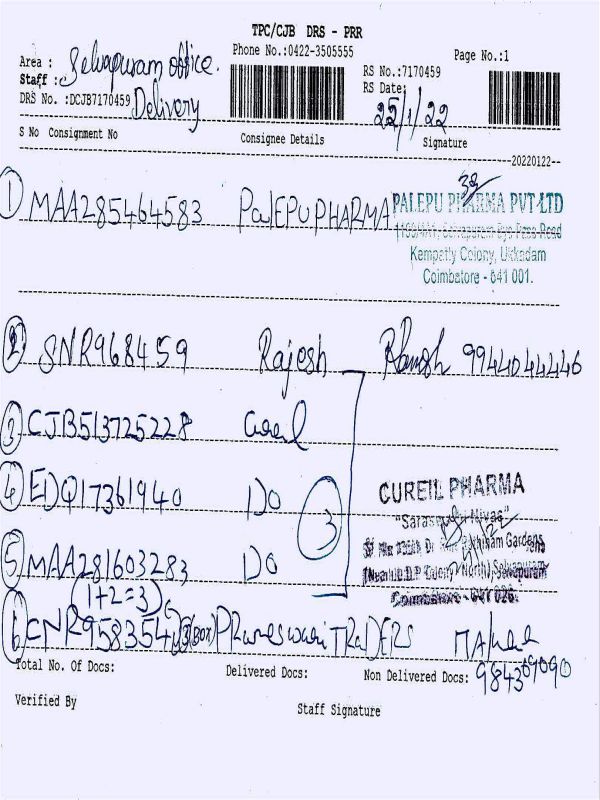 TPC/CJB DRS - PRR
Phone No.:0422-3505555
Page No.:1
Area : Selvapuram office.
Staff :
RS No.:7170459
RS Date:
25/1/22
DRS No. :DCJB7170459 Delivery
S No Consignment No Consignee Details Signature
20220122
1 MAA285464583 PALEPU PHARMA
PALEPU PHARMA PVT LTD
Kempatty Colony, Ukkadam
Coimbatore - 641 001.
2 SNR968459 Rajesh 9944044446
3 CJB513725228 Cureil
4 EDQ17361940 DO
3
CUREIL PHARMA
5 MAA281603283 DO
Coimbatore - 641 026.
(1+2=3)
6 TRADERS
Total No. Of Docs: Delivered Docs: Non Delivered Docs:
Verified By Staff Signature